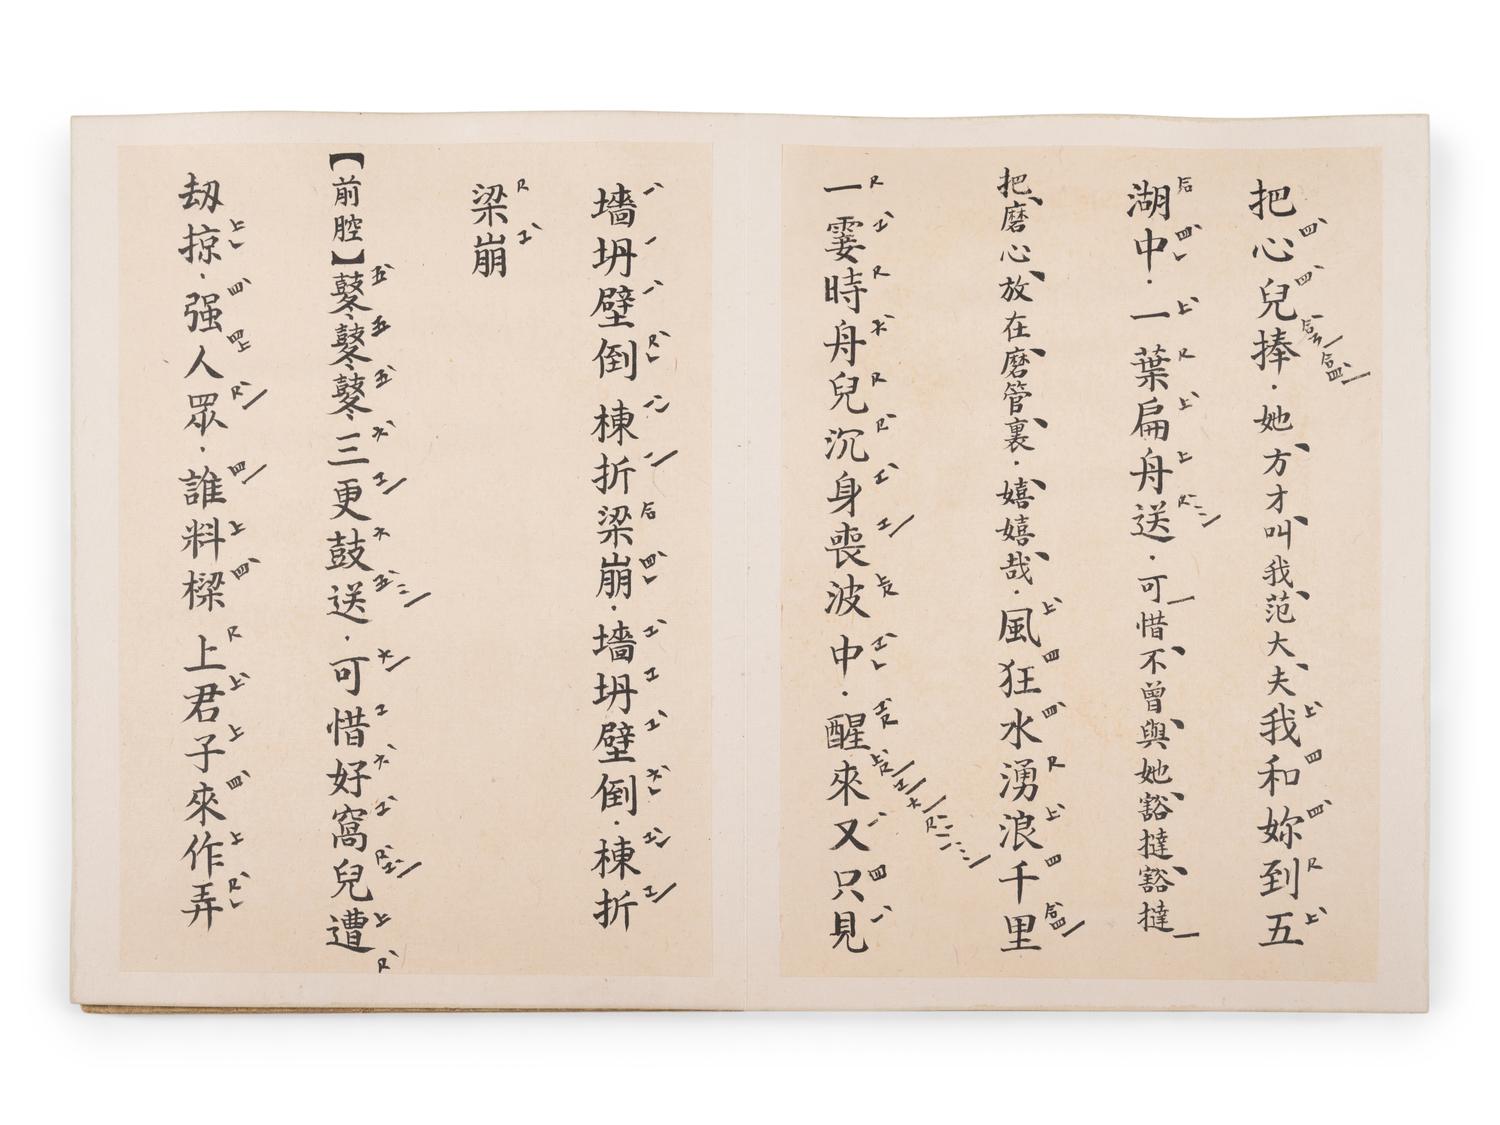 把心兒捧．她方才叫我范大夫我和妳到五
湖中．一葉扁舟送．可惜不曾與她豁撻豁撻
把磨心放在磨管裏．嬉嬉哉．風狂水湧浪千里
一霎時舟兒沉身喪波中．醒來又只見
墻坍壁倒棟折梁崩．墻坍壁倒．棟折
梁崩
【前腔】鼕鼕鼕三更鼓送．可惜好窩兒遭
劫掠．强人眾．誰料樑上君子來作弄